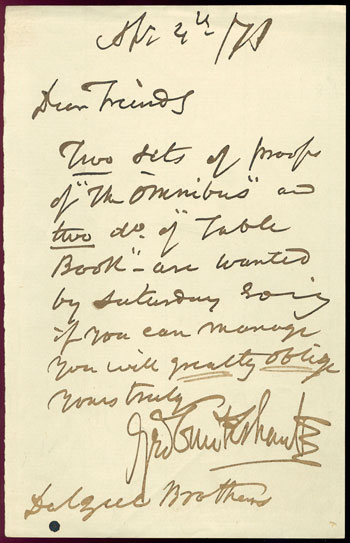 Apr 4th /71
Dear Friends
Two sets of proofs
of "The Omnibus" and
two do. of "Table
Book" - are wanted
by Saturday Evening
if you can manage
you will greatly oblige
yours truly
Geo Cruikshank
Dalziel Brothers